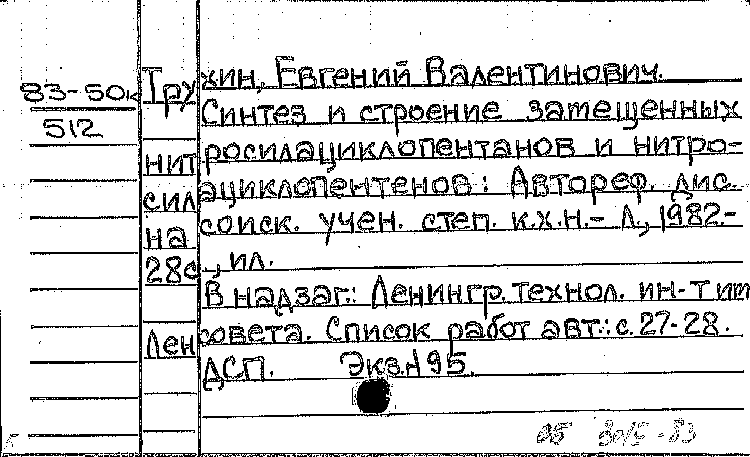 83-50к
512
Трухин, Евгений Валентинович.
Синтез и строение замещенных
нитросилациклопентанов и нитро-
силациклопентенов: Автореф. дис.
на соиск. учен. степ. к.х.н.- Л., 1982.-
28с., ил.
В надзаг.: Ленингр. технол. ин-т им
Ленсовета. Список работ авт.: с.27-28.
ДСП. Экз.№95.